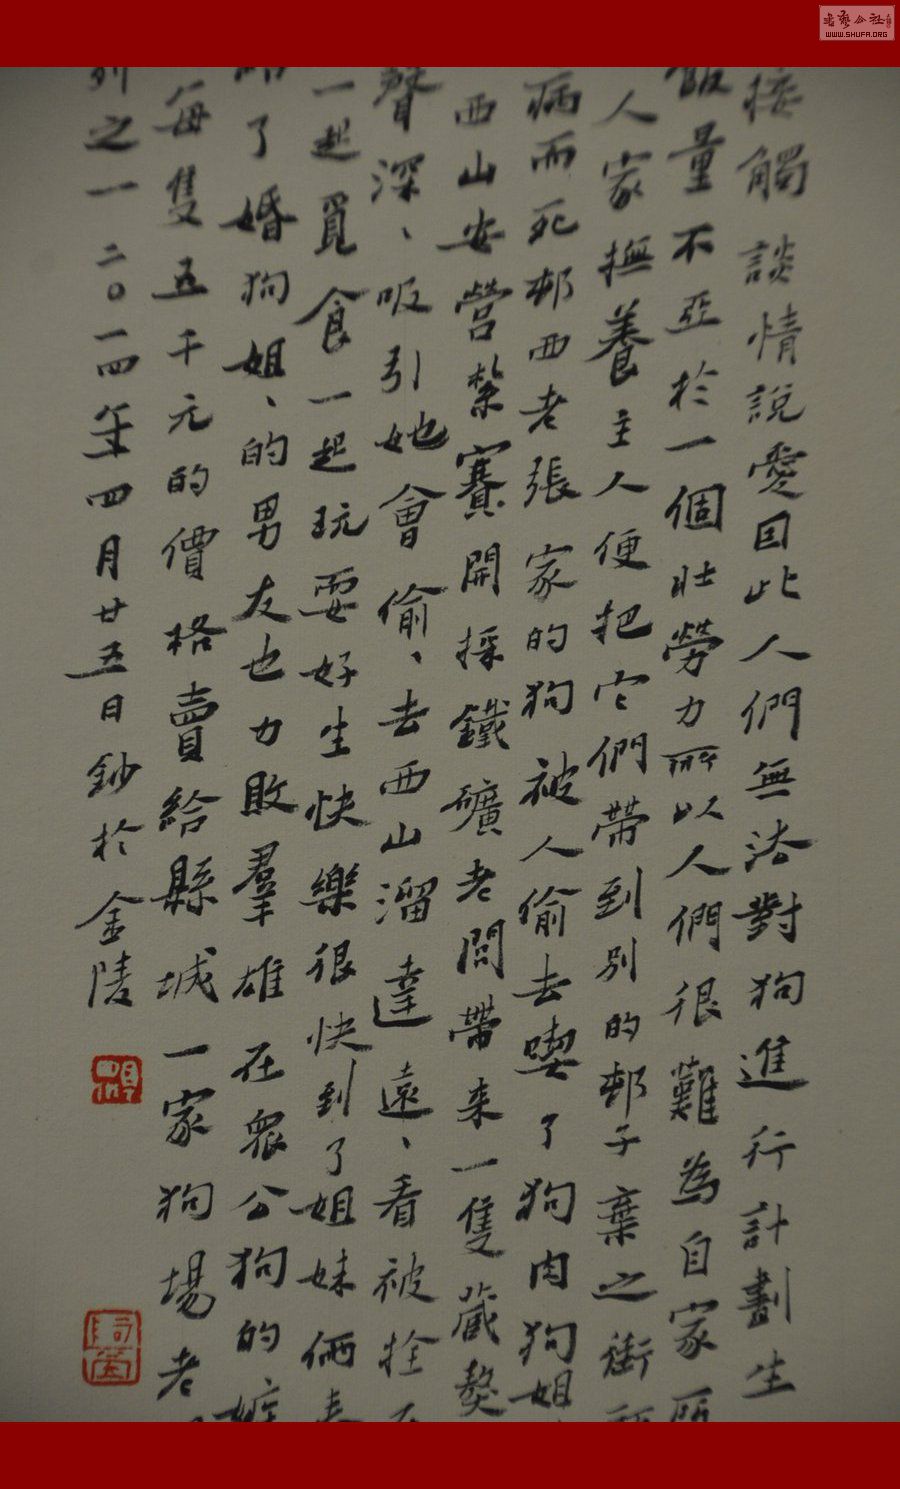 接觸談情說愛因此人們無法對狗進行計劃生
飯量不亞於一個壯勞力所以人們很難為自家
人家撫養主人便把它們帶到別的邨子棄之街
病而死邨西老張家的狗被人偷去喫了狗肉狗姐
西山安營紮賽開採鐵礦老闆帶来一隻藏獒
聲深、吸引她會偷、去西山溜達遠、看被拴
一起覓食一起玩耍好生快樂很快到了姐妹倆
了婚狗姐、的男友也力敗羣雄在衆公狗的嫉
每隻五千元的價格賣給縣城一家狗場老
之一二〇一四年四月廿五日鈔於金陵
WWW.SHUFA.ORG